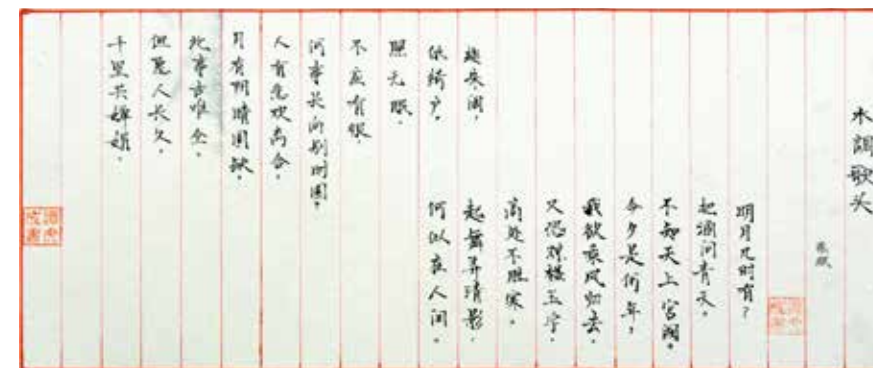 水調歌头
明月几时有?
把酒问青天。
不知天上宫阙。
今夕是何年,
我欲乘风归去,
又恐琼楼玉宇,
高处不胜寒。
起舞弄清影,
何似在人间。
转朱阁,
低绮户,
照无眠,
不应有恨。
何事长向别时圆。
人有悲欢离合。
月有阴晴圆缺。
此事古难全。
但愿人长久。
千里共婵娟。